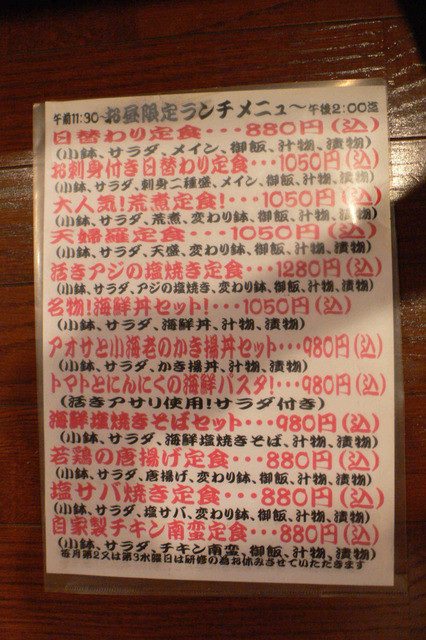 午前11:30～お昼限定ランチメニュー～午後2:00迄
日替わり定食・・・880円(込)
(小鉢、サラダ、メイン、御飯、汁物、漬物)
お刺身付き日替わり定食・・・1050円(込)
(小鉢、サラダ、刺身二種盛、メイン、御飯、汁物、漬物)
大人気!荒煮定食!・・・1050円(込)
(小鉢、サラダ、荒煮、変わり鉢、御飯、汁物、漬物)
天婦羅定食・・・1050円(込)
(小鉢、サラダ、天盛、変わり鉢、御飯、汁物、漬物)
活きアジの塩焼き定食・・・1280円(込)
(小鉢、サラダ、アジの塩焼き、変わり鉢、御飯、汁物、漬物)
名物!海鮮丼セット!・・・1050円(込)
(小鉢、サラダ、海鮮丼、汁物、漬物)
アオサと小海老のかき揚丼セット・・・980円(込)
(小鉢、サラダ、かき揚丼、汁物、漬物)
トマトとにんにくの海鮮パスタ!・・・980円(込)
(活きアサリ使用!サラダ付き)
海鮮塩焼きそばセット・・・980円(込)
(小鉢、サラダ、海鮮塩焼きそば、汁物、漬物)
若鶏の唐揚げ定食・・・880円(込)
(小鉢、サラダ、唐揚げ、変わり鉢、御飯、汁物、漬物)
塩サバ焼き定食・・・880円(込)
(小鉢、サラダ、塩サバ、変わり鉢、御飯、汁物、漬物)
自家製チキン南蛮定食・・・880円(込)
(小鉢、サラダ、チキン南蛮、御飯、汁物、漬物)
毎月第2又は第3水曜日は研修の為お休みさせていただきます